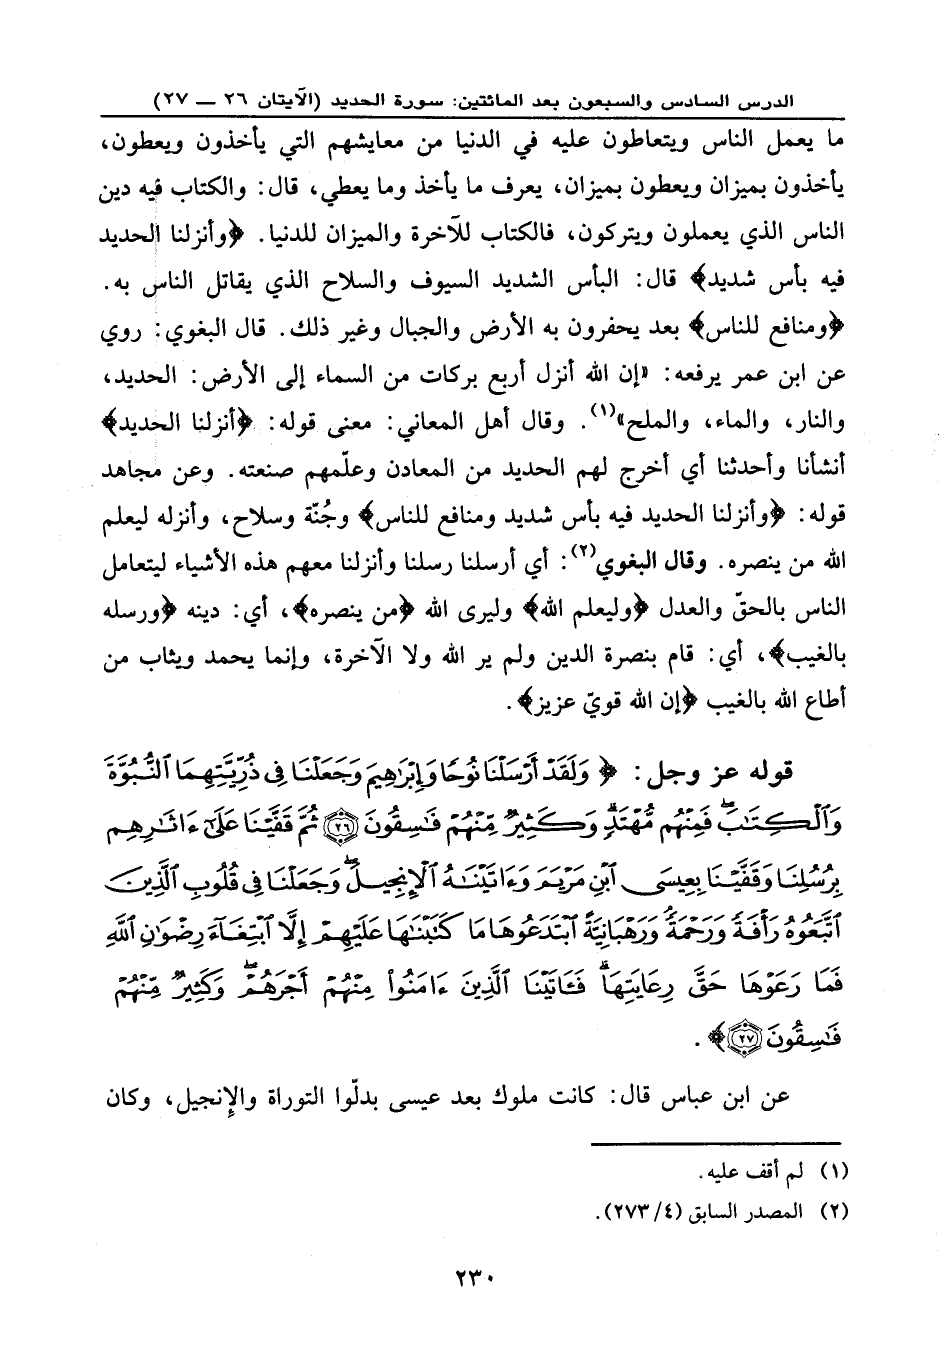 الدرس السادس والسبعون بعد المائتين: سورة الحديد (الآيتان ٢٦ — ٢٧)
ما يعمل الناس ويتعاطون عليه في الدنيا من معايشهم التي يأخذون ويعطون،
يأخذون بميزان ويعطون بميزان، يعرف ما يأخذ وما يعطي، قال: والكتاب فيه دين
الناس الذي يعملون ويتركون، فالكتاب للآخرة والميزان للدنيا. ﴿وأنزلنا الحديد
فيه بأس شديد﴾ قال: البأس الشديد السيوف والسلاح الذي يقاتل الناس به.
﴿ومنافع للناس﴾ بعد يحفرون به الأرض والجبال وغير ذلك. قال البغوي: روي
عن ابن عمر يرفعه: «إن الله أنزل أربع بركات من السماء إلى الأرض: الحديد،
والنار، والماء، والملح»(١). وقال أهل المعاني: معنى قوله: ﴿أنزلنا الحديد﴾
أنشأنا وأحدثنا أي أخرج لهم الحديد من المعادن وعلّمهم صنعته. وعن مجاهد
قوله: ﴿وأنزلنا الحديد فيه بأس شديد ومنافع للناس﴾ وجُنّة وسلاح، وأنزله ليعلم
الله من ينصره. وقال البغوي(٢): أي أرسلنا رسلنا وأنزلنا معهم هذه الأشياء ليتعامل
الناس بالحقّ والعدل ﴿وليعلم الله﴾ وليرى الله ﴿من ينصره﴾، أي: دينه ﴿ورسله
بالغيب﴾، أي: قام بنصرة الدين ولم ير الله ولا الآخرة، وإنما يحمد ويثاب من
أطاع الله بالغيب ﴿إن الله قويّ عزيز﴾.
قوله عز وجل: ﴿وَلَقَدْ أَرْسَلْنَا نُوحًا وَإِبْرَٰهِيمَ وَجَعَلْنَا فِى ذُرِّيَّتِهِمَا ٱلنُّبُوَّةَ
وَٱلْكِتَٰبَ ۖ فَمِنْهُم مُّهْتَدٍ ۖ وَكَثِيرٌ مِّنْهُمْ فَٰسِقُونَ ٢٦ ثُمَّ قَفَّيْنَا عَلَىٰٓ ءَاثَٰرِهِم
بِرُسُلِنَا وَقَفَّيْنَا بِعِيسَى ٱبْنِ مَرْيَمَ وَءَاتَيْنَٰهُ ٱلْإِنجِيلَ ۖ وَجَعَلْنَا فِى قُلُوبِ ٱلَّذِينَ
ٱتَّبَعُوهُ رَأْفَةً وَرَحْمَةً وَرَهْبَانِيَّةً ٱبْتَدَعُوهَا مَا كَتَبْنَٰهَا عَلَيْهِمْ إِلَّا ٱبْتِغَآءَ رِضْوَٰنِ ٱللَّهِ
فَمَا رَعَوْهَا حَقَّ رِعَايَتِهَا ۖ فَـَٔاتَيْنَا ٱلَّذِينَ ءَامَنُوا۟ مِنْهُمْ أَجْرَهُمْ ۖ وَكَثِيرٌ مِّنْهُمْ
فَٰسِقُونَ ٢٧﴾.
عن ابن عباس قال: كانت ملوك بعد عيسى بدلّوا التوراة والإنجيل، وكان
(١) لم أقف عليه.
(٢) المصدر السابق (٤/ ٢٧٣).
٢٣٠